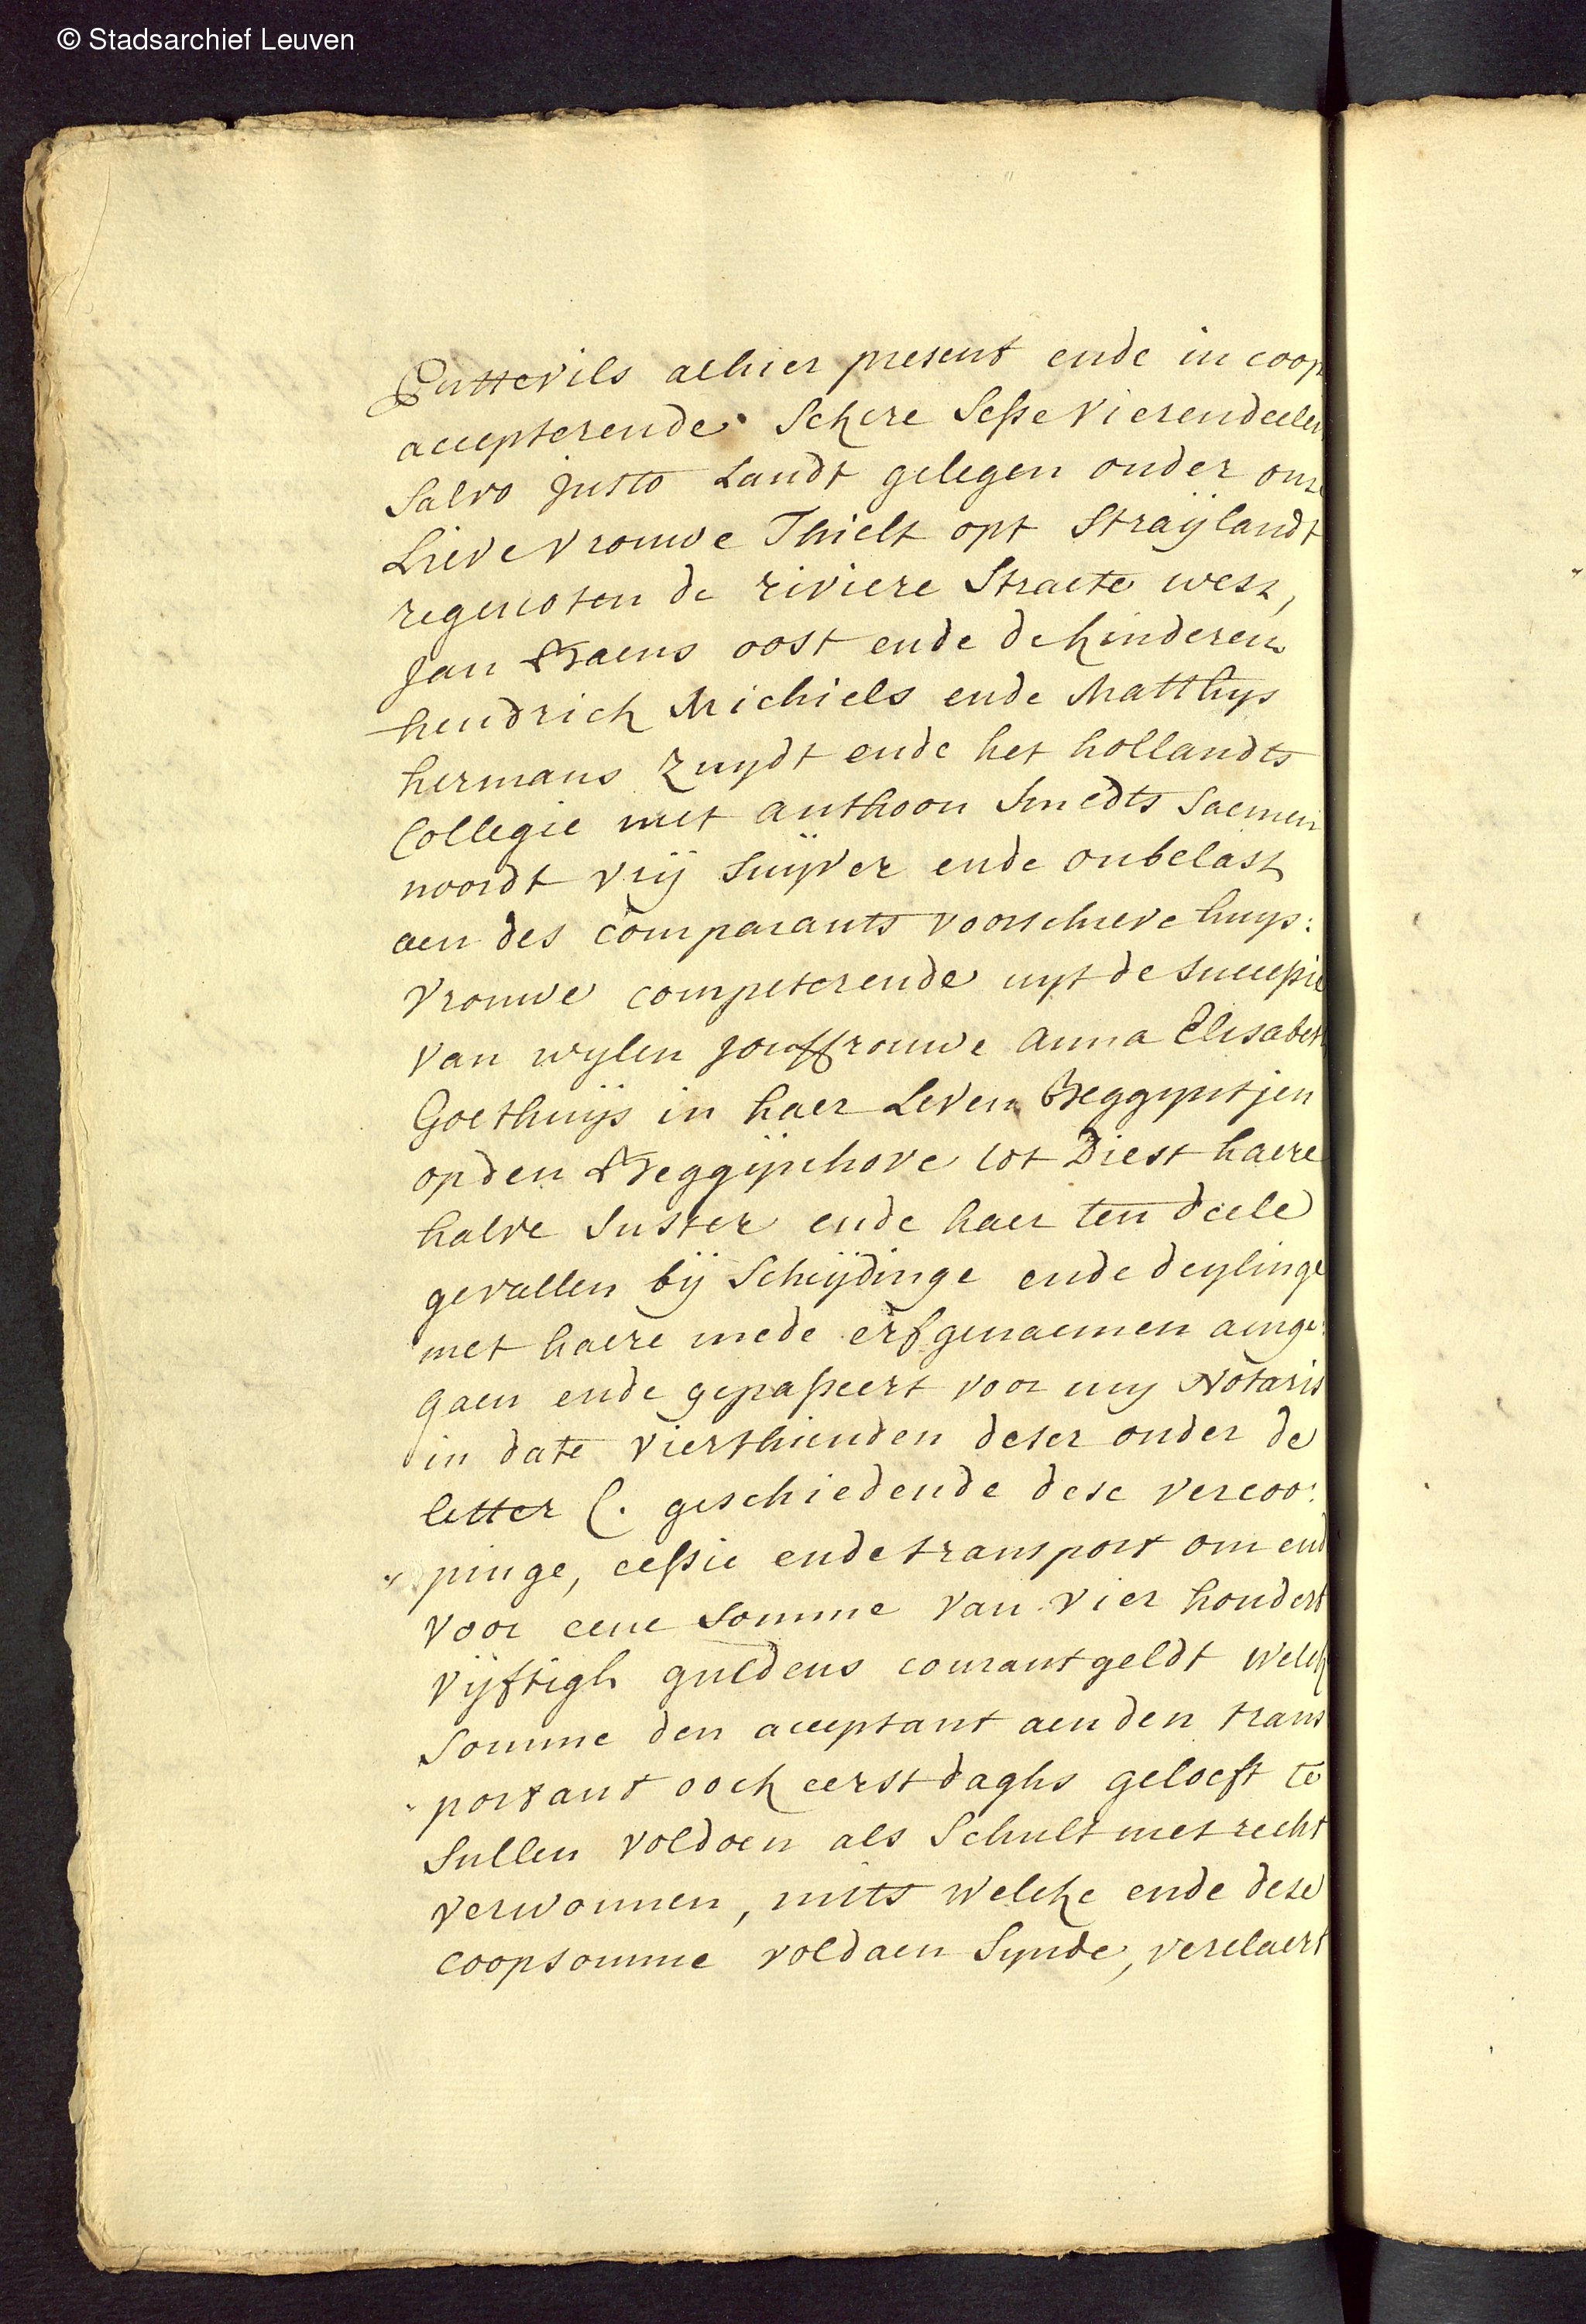 © Stadsarchief Leuven
Puttevils alhier present ende in coop
accepterende Sekere Sesse vierendeelen
Salvo Justo Landt gelegen onder onse
Lieve vrouwe Thielt opt Straijlandt
regenoten de riviere Straete west,
Jan Baens oost ende de kinderen
hendrick Michiels ende Matthys
hermans Zuydt ende het hollandts
Collegie met anthoon Smedts Saemen
noordt vrij Suijver ende onbelast
aen des comparants voorschreve huys:
vrouwe competerende uyt de Successie
van wylen jouffrouwe anna Elisabeth
Goethuijs in haer Leven Beggyntjen
op den Beggijnhove tot Diest haere
halve Suster ende haer ten deele
gevallen bij Scheijdinge ende deylinge
met haere mede erfgenaemen aenge:
gaen ende gepasseert voor my Notaris
in date vierthienden deser onder de
letter C. geschiedende dese vercoo:
pinge, cessie ende transport om ende
voor eene Somme van vier hondert
vijftigh guldens courant geldt welck
Somme den acceptant aen den trans
portant oock eerstdaghs geloeft te
Sullen voldoen als Schult met recht
verwonnen, mits welcke ende dese
coopsomme voldaen Synde, verclaert